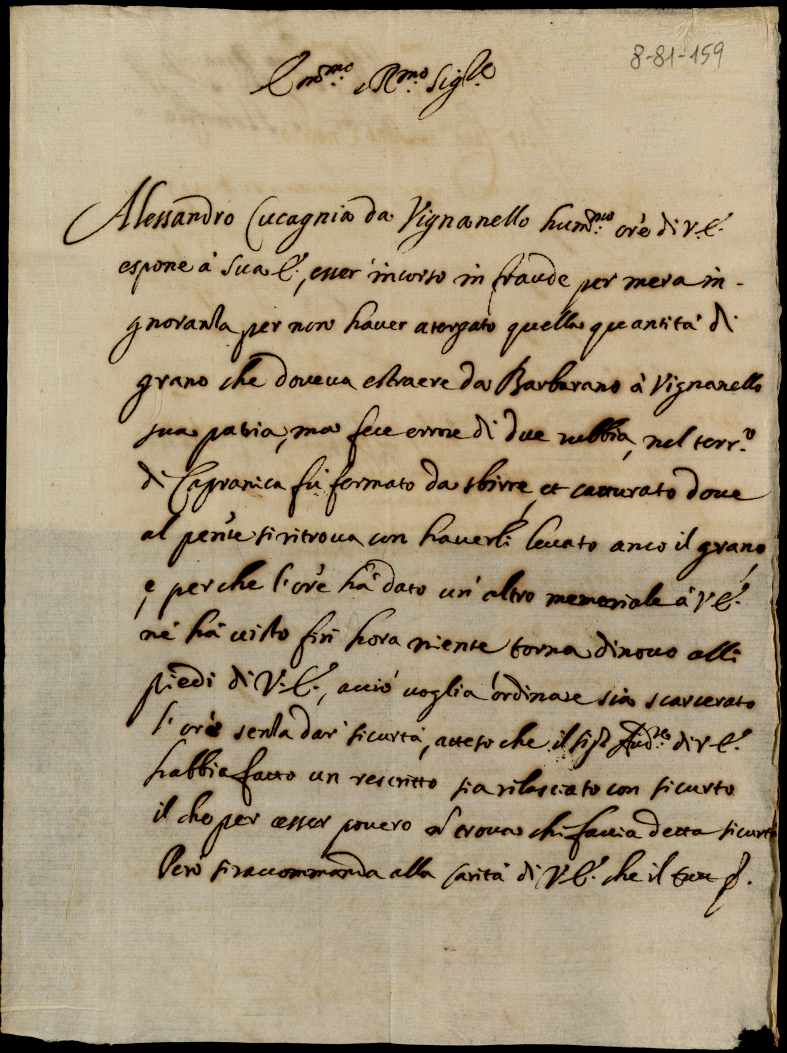 8-81-159
Em.mo e R.mo Sig.re
Alessandro Cucagnia da Vignanello hum.mo ore di V.E.
espone à Sua E., esser' incorso in fraude per mera in-
gnoranza per non haver atergato quella quantità di
grano che doveva estraere da Barbarano à Vignanello
sua patria, ma fece errore di due rubbia, nel terr.o
di Capranica fù fermato da sbirre, et catturato dove
al pente si ritrova con haverli levato anco il grano,
e perche l'ore hà dato un' altro memoriale à V.E.
nè hà visto fin hora niente torna di novo alli
piedi di V.E., acciò voglia ordinare sia scarcerato
l'ore senza dar' sicurtà, atteso che il sig.r Aud.re di V.E.
habbia fatto un rescritto sia rilasciato con sicurtà
il che per esser povero n trova chi faccia detta sicurtà
Però si raccommanda alla carità di V.E. che il tutto